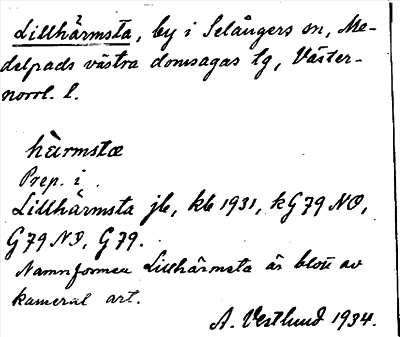 Lillhärmsta, by i Selångers sn, Me-
delpads västra domsagas tg, Väster-
norrl. l.
härmstæ
Prep. i.
Lillhärmsta jb, kb 1931, k G 79 NO,
G 79 NO, G 79.
Namnformen Lillhärmsta är blott av
kameral art.
A. Vestlund 1934.